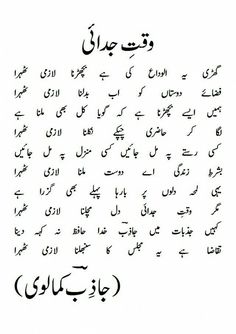 وقتِ جدائی
گھڑی یہ الوداع کی ہے بچھڑنا لازمی ٹھہرا
فضائے دوستاں کو اب بدلنا لازمی ٹھہرا
ہمیں ایسے بچھڑنا ہے کہ گویا کل بھی ملنا ہے
لگا کر حاضری چپکے نکلنا لازمی ٹھہرا
کسی رستے پہ مل جائیں کسی منزل پہ مل جائیں
بشرطِ زندگی اے دوست ملنا لازمی ٹھہرا
یہی لمحہ دلوں پر بارہا پہلے بھی گزرا ہے
مگر وقتِ جدائی دل مچلنا لازمی ٹھہرا
کہیں جذبات میں جاذبؔ خدا حافظ نہ کہہ دینا
تقاضا ہے یہ مجلس کا سنبھلنا لازمی ٹھہرا
(جاذبؔ کمالوی)